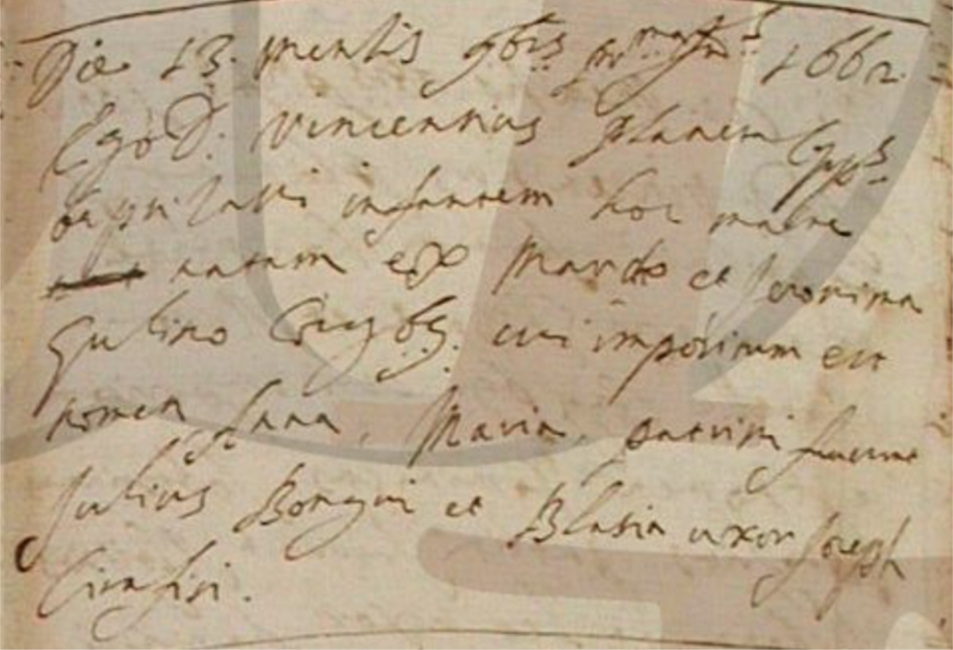 Die 13. mensis 9bris 1662
Ego D. Vincentius Planera Cappus
baptizavi infantem hoc mane
natam ex Mardo et Jeronima
Gulino Coniugbs. cui impositum est
nomen Anna, Maria, patrini fuerunt
Julius Bongini et Blasia uxor Joseph